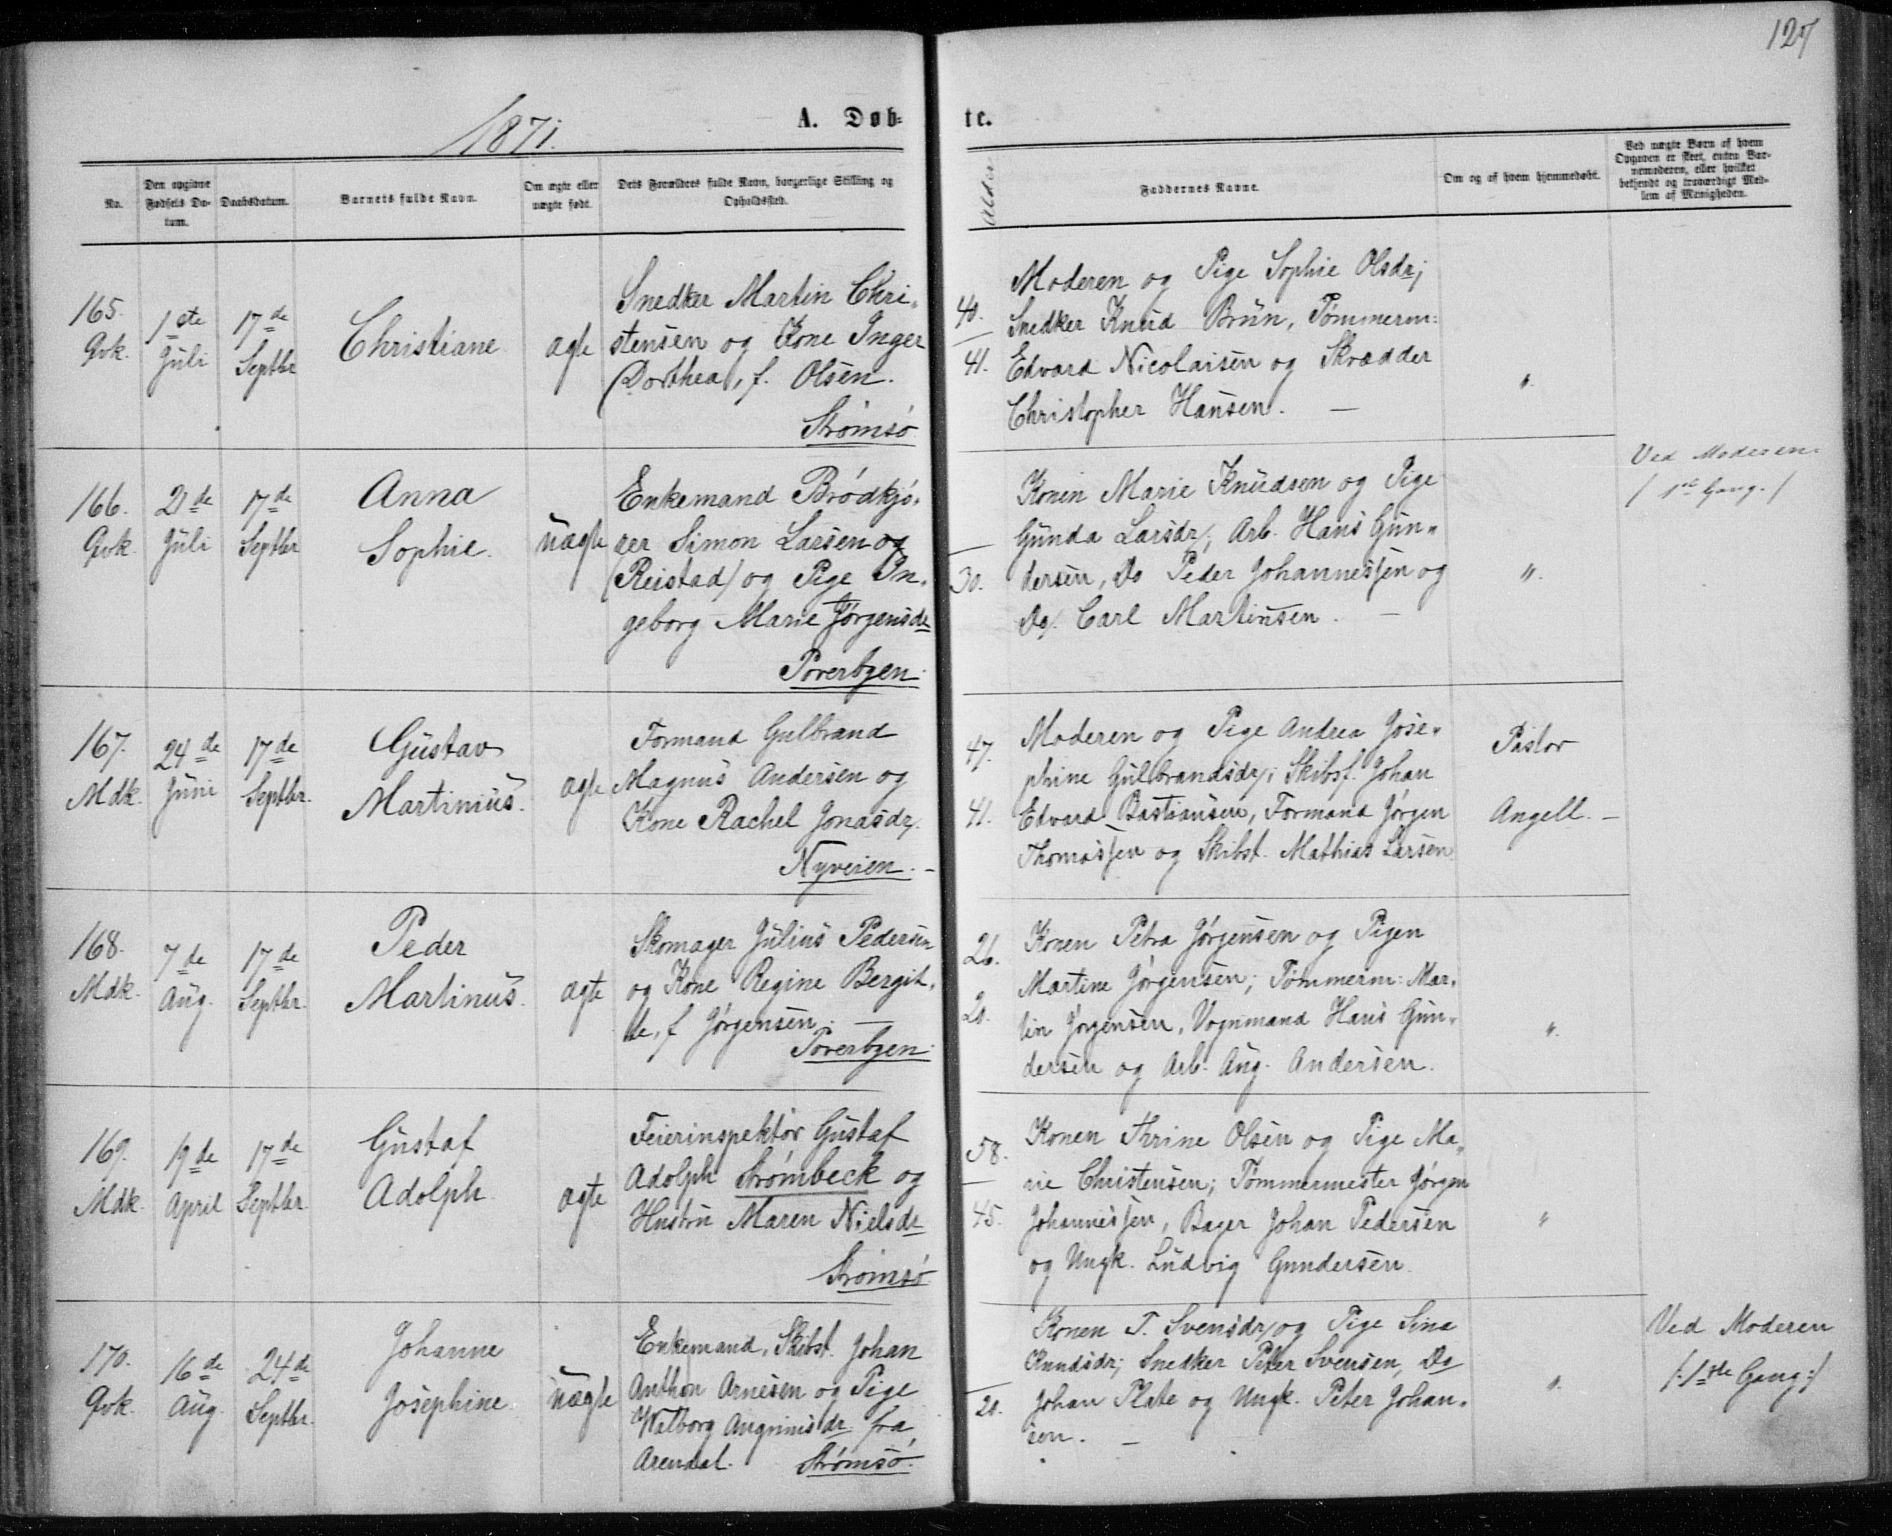 127
1871.
A. Døb-
te.
No.
Den opgivne Fødsels Da-tum.
Daabsdatum.
Barnets fulde Navn.
Om ægte eller uægte født.
Dets Forældres fulde Navn, borgerlige Stilling og Opholdssted.
Alder
Faddernes Navne.
Om og af hvem hjemmedøbt.
Ved uægte Børn af hvem Opgaven er skeet, enten Bar-nemoderen, eller hvilket bekjendt og troværdigt Med-lem af Menigheden.
165.
Qvk.
1ste
Juli
17de
Septbr
Christiane
ægte
Snedker Martin Chri-
stensen og Kone Inger
Dorthea, f. Olsen.
Strømsø
40.
41.
Moderen og Pige Sophie Olsdr;
Snedker Knud Brün, Tømmerm:
Edvard Nicolaisen og Skrædder
Christopher Hansen. —
".
166.
Qvk.
21de
Juli
17de
Septbr
Anna
Sophie.
uægte
Enkemand Brødkjø-
rer Simon Larsen og
(Reistad) og Pige In-
geborg Marie Jørgensdr
Torerbyen.
30.
Konen Marie Knudsen og Pige
Gunda Larsdr; Arb. Hans Gun-
dersen, Do Peder Johannessen og
Do. Carl Martinsen. —
".
Ved Moderen.
/ 1ste Gang. /
167.
Mdk.
24de
Juni
17de
Septbr.
Gustav
Martinius.
ægte
Formand Gulbrand
Magnus Andersen og
Kone Rachel Jonasdr.
Nyveien. —
47.
41.
Moderen og Pige Andrea Jose-
phine Gulbrandsdr; Skibsf. Johan
Edvard Bastiansen, Formand Jørgen
Thomassen og Skibst. Mathias Larsen
Pastor
Angell. —
168.
Mdk.
7de
Aug.
17de
Septbr.
Peder
Martinus.
ægte
Skomager Julius Pedersen
og Kone Regine Bergit-
te, f Jørgensen. —
Torerbyen.
26.
20.
Konen Petra Jørgensen og Pigen
Martine Jørgensen; Tømmerm: Mar-
tin Jørgensen, Vognmand Hans Gun-
dersen og Arb. Aug. Andersen.
".
169.
Mdk.
19de
April
17de
Septbr.
Gustaf
Adolph.
ægte
Feierinspektør Gustaf
Adolph Strømbeck og
Hustru Maren Nielsdr
Strømsø
58.
45.
Konen Thrine Olsen og Pige Ma-
rie Christensen; Tømmermester Jørgen
Johannessen, Bager Johan Pedersen
og Ungk. Ludvig Gundersen.
"
170.
Qvk.
16de
Aug.
24de
Septbr.
Johanne
Josephine.
uægte
Enkemand, Skibst. Johan
Anthon Arnesen og Pige
Walborg Angrimsdr fra
Arendal. Strømsø.
20.
Konen T. Svensdr og Pige Sina
Knudsdr; Snedker Peter Svensen, Do
Johan Plate og Ungk. Peter Johan-
sen. —
".
Ved Moderen
/: 1ste Gang :/